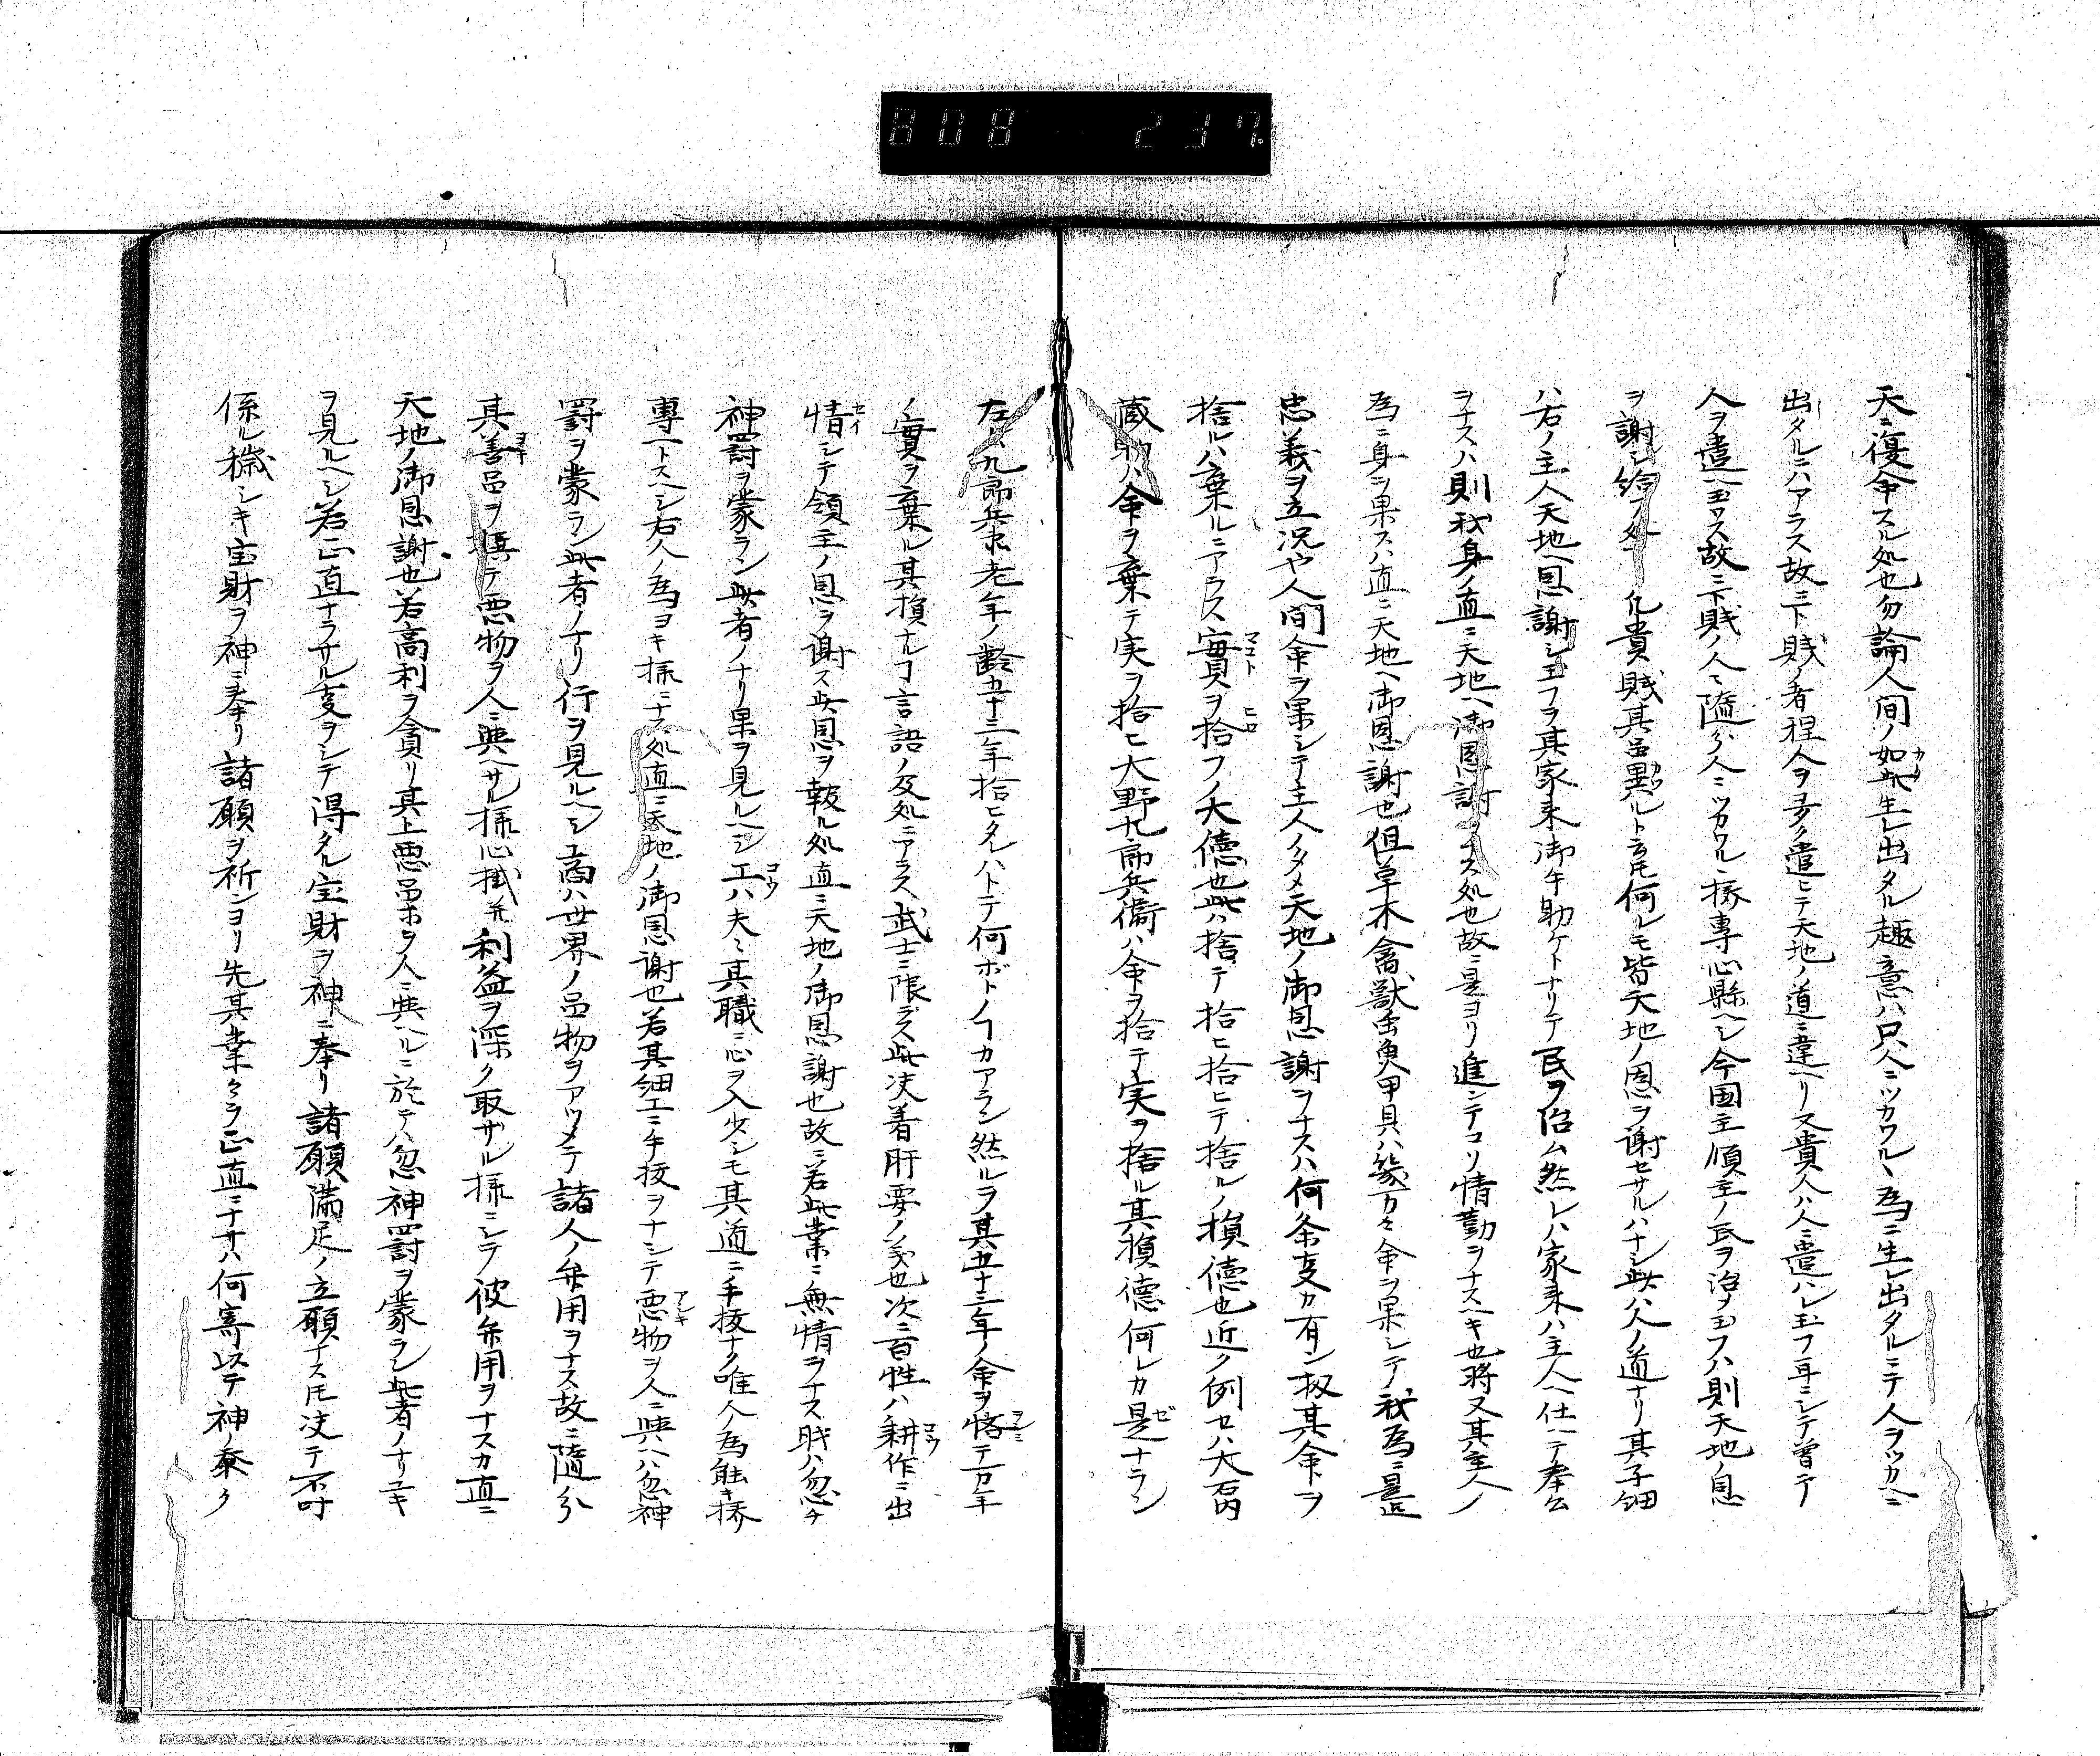 808 237.
天ニ復命スル処也勿論人間ノ如此生レ出タル趣意ハ只人ニツカワルヽ為ニ生レ出タルニテ人ヲツカヘニ
出タルニハアラス故ニ下賎ノ者程人ヲ多ク遣ヒテ天地ノ道ニ違ヘリ又貴人ハ人ニ遣ハレ玉フ耳ニシテ曽テ
人ヲ遣ヘ玉ワス故ニ下賎ノ人ニ随分人ニツカワルヽ様専心懸ヘシ今国主順主ノ民ヲ治メ玉フハ則天地ノ恩
ヲ謝シ給フ処ナリ凡貴賎其品異ルト云ヒ何レモ皆天地ノ恩ヲ謝セサルハナシ此人ノ道ナリ其子細
ハ右ノ主人天地ヘ恩謝シ玉フヲ其家来御手助ケトナリテ民ヲ治ム然レハ家来ハ主人ヘ仕ヘテ奉公
ヲナスハ則我身ノ直ニ天地ヘ御恩謝ヲナス処也故ニ是ヨリ進ンテコソ情勤ヲナスヘキ也将又其主人ノ
為ニ身ヲ果スハ直ニ天地ヘ御恩謝也但草木禽獣虫魚甲貝ハ幾万々命ヲ果シテ我為ニ是
忠義ヲ立况ヤ人間命ヲ果シテ主人ノタメ天地ノ御恩謝ヲナスハ何条変カ有ン扨其命ヲ
捨ルハ棄ルニアラス實ヲ拾フノ大徳也此ハ捨テ拾ヒ拾ヒテ捨ルノ損徳也近ク例セハ大石内
蔵助ハ命ヲ棄テ実ヲ拾ヒ大野九郎兵衛ハ命ヲ拾テ実ヲ捨ル其損徳何レカ是ナラン
左ハ九郎兵衛老年ノ齢五十三年拾ヒタレハトテ何ホトノヿカアラン然ルヲ其五十三年ノ命ヲ悋テ万年
ノ實ヲ棄ル其損ナルヿ言語ノ及処ニアラス武士ニ限ラス此决着肝要ノ義也次ニ百性ハ耕作ニ出
情シテ領主ノ恩ヲ謝ス此恩ヲ報ル処直ニ天地ノ御恩謝也故ニ若此業ニ無情ヲナス時ハ忽チ
神罰ヲ蒙ラン此者ノナリ果ヲ見ルヘシ工ハ夫々其職ニ心ヲ入少シモ其道ニ手抜ナク唯人ノ為能キ様
專一トスヘシ右人ノ為ヨキ様ニナス処直ニ天地ノ御恩謝也若其細工ニ手抜ヲナシテ悪物ヲ人ニ與ヘハ忽神
罰ヲ蒙ラン此者ノナリ行ヲ見ルヘシ商ハ世界ノ品物ヲアツメテ諸人ノ弁用ヲナス故ニ随分
其善品ヲ撰テ悪物ヲ人ニ與ヘサル様心掛并利益ヲ深ク取ザル様ニシテ彼弁用ヲナスカ直ニ
天地ノ御恩謝也若高利ヲ貪リ其上悪品ホヲ人ニ與ヘルニ於テハ忽神罰ヲ蒙ラン此者ノナリユキ
ヲ見ルヘシ若正直ナラサル支ヲシテ得タル宝財ヲ神ニ奉リ諸願満足ノ立願ナス𪜈决テ不叶
係ル穢シキ宝財ヲ神ニ奉リ諸願ヲ祈ンヨリ先其業々ヲ正直ニナサハ何寄以テ神ノ泰ク